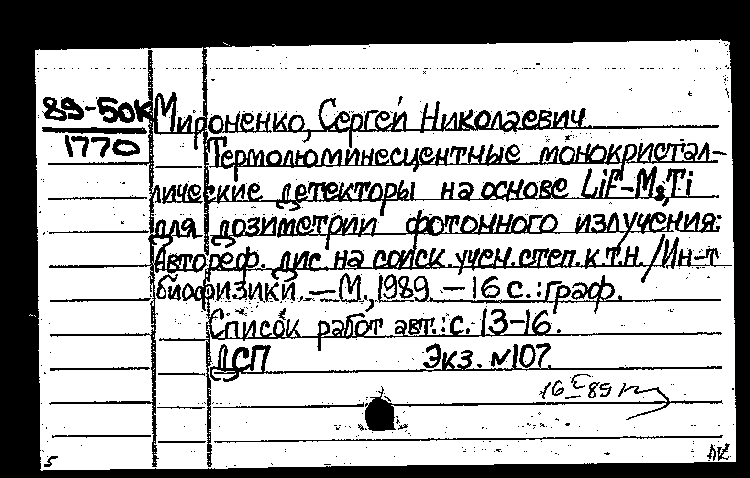 89-50к
1770
Мироненко, Сергей Николаевич
Термолюминесцентные монокристал-
лические детекторы на основе LiF-Mg,Ti
для дозиметрии фотонного излучения:
Автореф. дис. на соиск. учен. степ. к.т.н. /Ин-т
биофизики. — М., 1989 — 16 с.: граф.
Список работ авт.: с. 13-16.
ДСП Экз. №107.
5